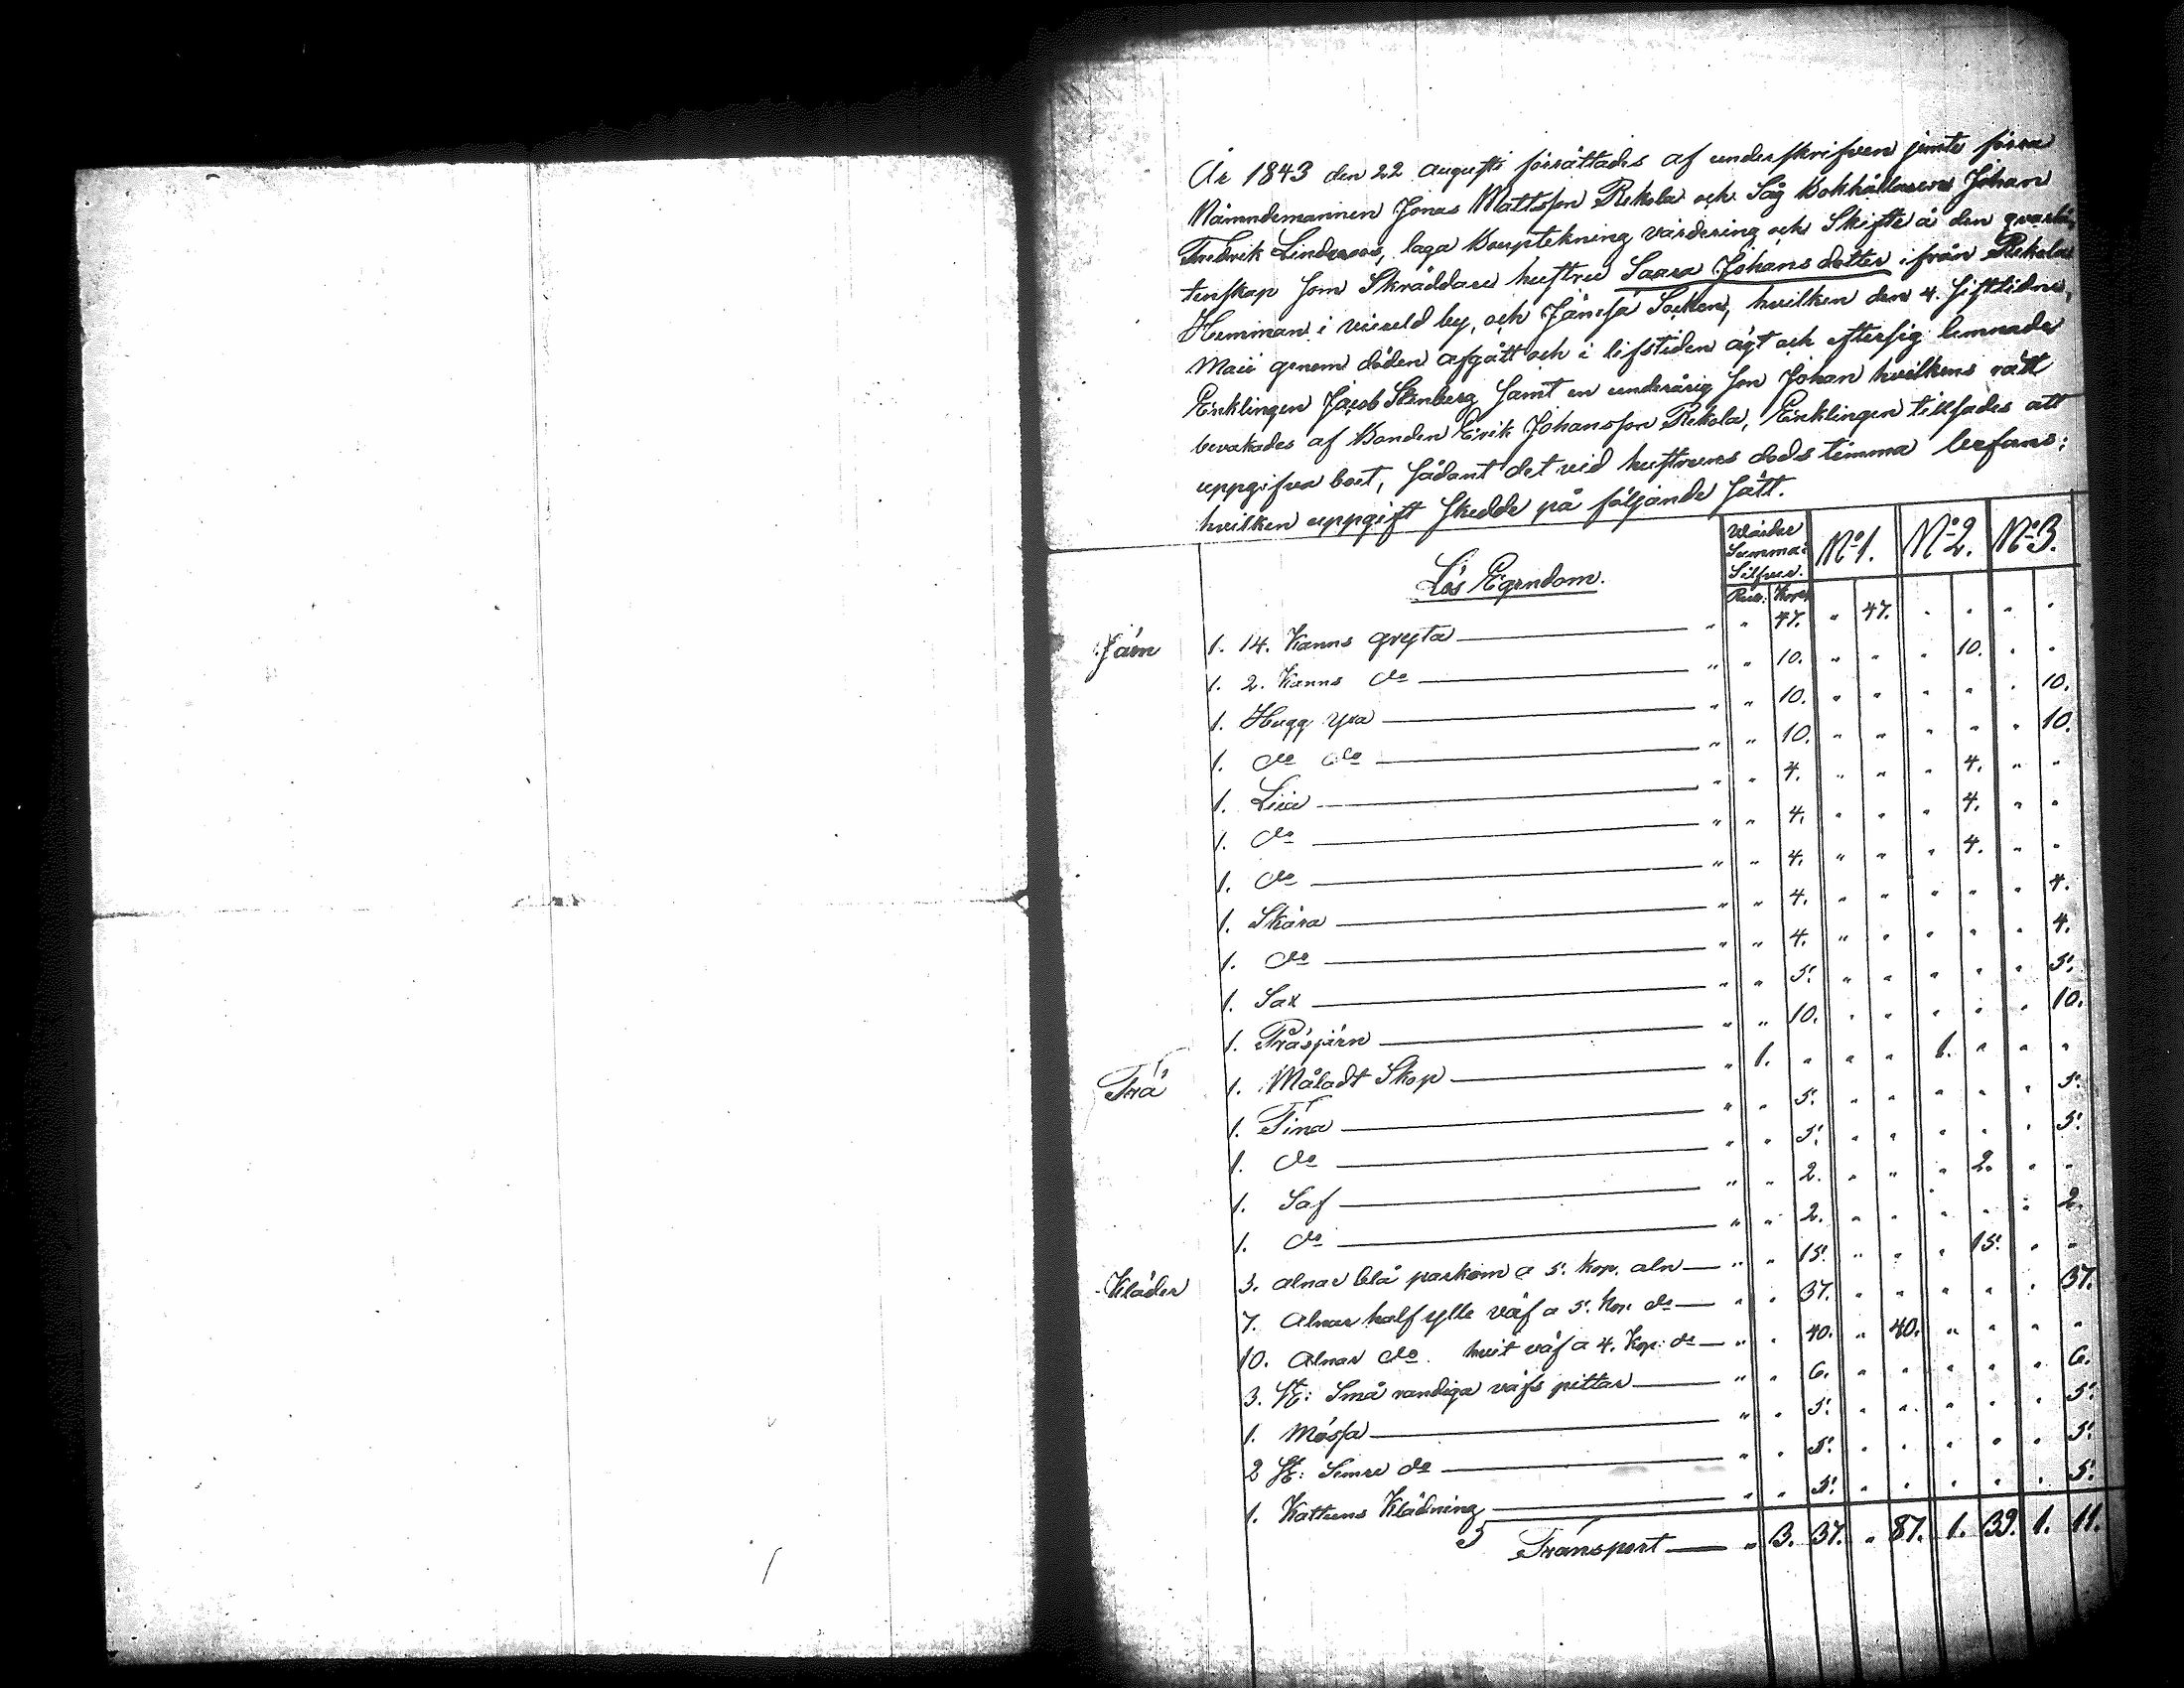 År 1843 den 22 Augusti förrättades af underskrifven jemte förra
Nämndemannen Jonas Mattsson Rekola och Såg Bokhållaren Johan
Fredrik Linderoos, laga Bouptekning värdering och Skifte å den qvarlå,
tenskap som Skräddare hustrue Saara Johans dotter ifrån Rekola
Hemman i by, och Jämsä Socken, hvilken den 4. sistledne,
Maii genom döden afgått och i lifstiden ägt och eftersig lemnade
Enklingen Jacob Stenberg samt en underårig son Johan hvilkens rätt
bevakades af Bonden Erik Johansson Rekola, Enklingen tillsades att
uppgifva boet, sådant det vid hustruns döds timma befans:
hvilken uppgift skedde på följande sätt.
Lös Egendom. Värder Summa: Silfver. No 1. No 2. No 3.
Rub: Kop:
Järn 1. 14. Kanns gryta " " 47. " 47. " " " "
1. 2. Kanns do " " 10. " " " 10. " "
1. Hugg yxa " " 10. " " " " " 10.
1. do do " " 10. " " " " " 10.
1. Liia " " 4. " " " 4. " "
1. do " " 4. " " " 4. " "
1. do " " 4. " " " 4. " "
1. Skära " " 4. " " " " " 4.
1. do " " 4. " " " " " 4.
1. Sax " " 5. " " " " " 5.
1. Präsjärn " " 10. " " " " " 10.
Trä 1. Måladt Skop " 1. " " " 1. " " "
1. Tina " " 5. " " " " " 5.
1. do " " 5. " " " " " 5.
1. Saf " " 2. " " " 2. " "
1. do " " 2. " " " " " 2.
Kläder 3. alnar blå parkom a 5. Kop. aln " " 15. " " " 15. " "
7. Alnar half ylle väf a 5. Kop. do " " 37. " " " " " 37.
10. Alnar do hvit väf a 4. Kop: do " " 40. " 40. " " " "
3. St: Små randiga väfs pittar " " 6. " " " " " 6.
1. Mössa " " 5. " " " " " 5.
2 St: Semre do " " 5. " " " " " 5.
1. Kattuns Klädning " " 5. " " " " " 5.
Transport " 3. 37. " 87. 1. 39. 1. 11.